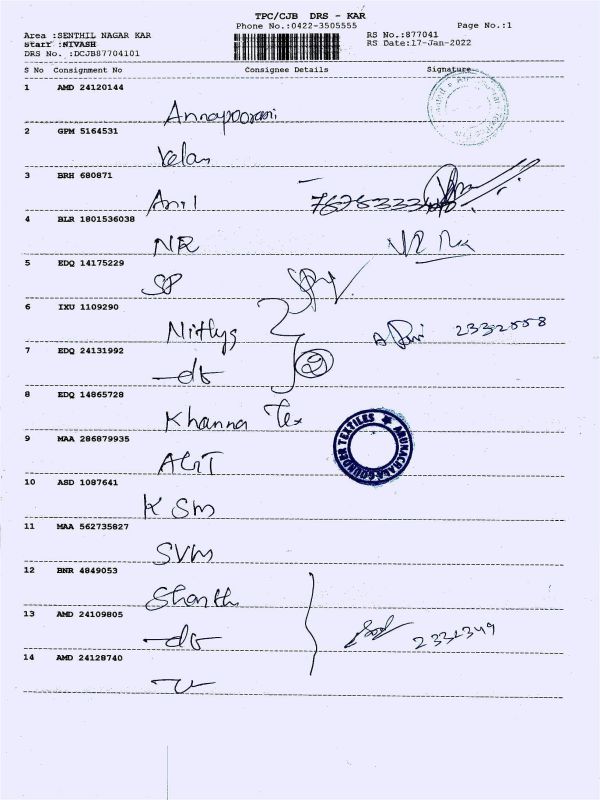 TPC/CJB DRS - KAR
Phone No.:0422-3505555
Page No.:1
Area :SENTHIL NAGAR KAR
RS No.:877041
Staff :NIVASH
RS Date:17-Jan-2022
DRS No. :DCJB87704101
S No Consignment No Consignee Details Signature
1 AMD 24120144
Annapoorani
2 GPM 5164531
Velan
3 BRH 680871
Anil
4 BLR 1801536038
NR
5 EDQ 14175229
SP
6 IXU 1109290
Nithys 2332558
7 EDQ 24131992
-do- 2
8 EDQ 14865728
Khanna Tex
9 MAA 286879935
ARUNACHALA GOUNDER TEXTILES
AGT
10 ASD 1087641
KSM
11 MAA 562735827
SVM
12 BNR 4849053
Shanthi
13 AMD 24109805
-do- 2331349
14 AMD 24128740